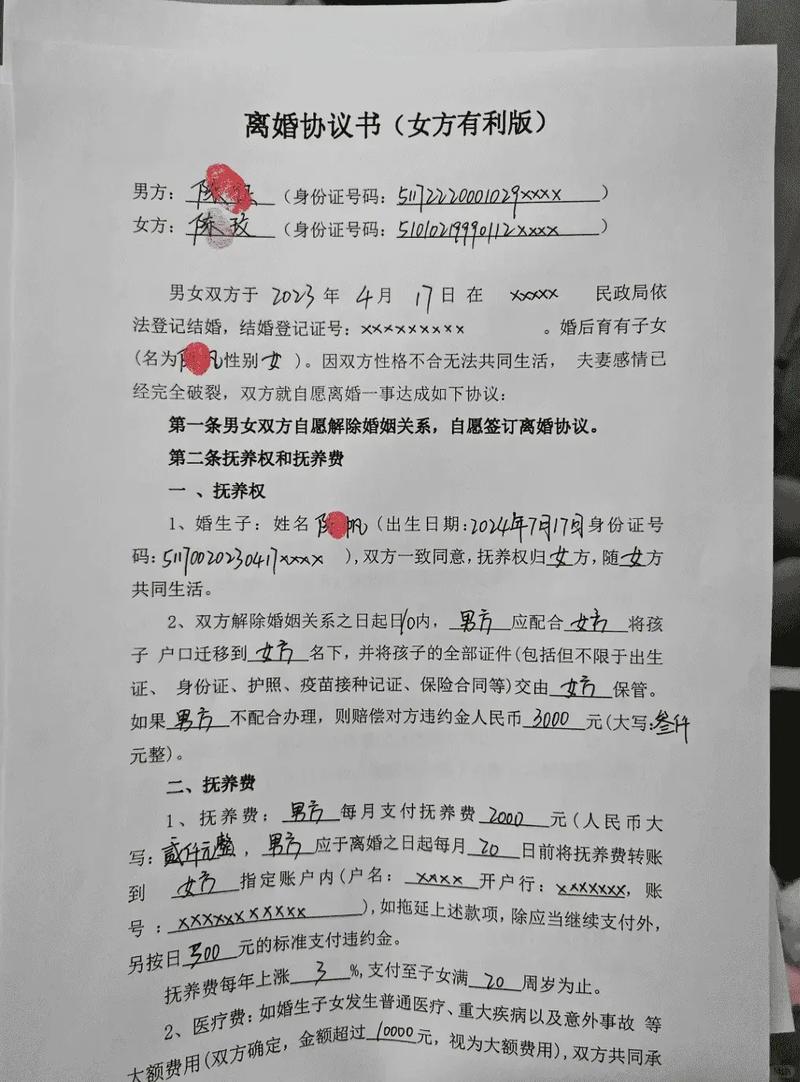 离婚协议书（女方有利版）
男方：陈（身份证号码：51172220001029xxxx）
女方：陈玫（身份证号码：51010219990112xxxx）
男女双方于 2023 年 4 月 17 日 在 xxxxx 民政局依
法登记结婚，结婚登记证号：xxxxxxxxx 。婚后育有子女
(名为凡性别女 )。因双方性格不合无法共同生活， 夫妻感情已
经完全破裂，双方就自愿离婚一事达成如下协议：
第一条男女双方自愿解除婚姻关系，自愿签订离婚协议。
第二条抚养权和抚养费
一 、抚养权
1、婚生子：姓名 帆（出生日期:2024年7月17日身份证号
码:51170020230417xxxx ),双方一致同意，抚养权归女方，随女方
共同生活。
2、双方解除婚姻关系之日起日10内，男方应配合女方将孩
子 户口迁移到女方名下，并将孩子的全部证件(包括但不限于出生
证、 身份证、护照、疫苗接种记证、保险合同等)交由女方保管。
如果男方不配合办理，则赔偿对方违约金人民币 3000 元(大写:叁仟
元整)。
二、抚养费
1、抚养费：男方每月支付抚养费 2000 元(人民币大
写:贰仟元整，男方应于离婚之日起每月 20 日前将抚养费转账
到 女方 指定账户内(户名：xxxx 开户行：xxxxxxx，账
号：xxxxxxxxxxxx ),如拖延上述款项，除应当继续支付外，
另按日 300 元的标准支付违约金。
抚养费每年上涨 3 %,支付至子女满 20 周岁为止。
2、医疗费：如婚生子女发生普通医疗、重大疾病以及意外事故 等
大额费用(双方确定，金额超过10000元，视为大额费用),双方共同承